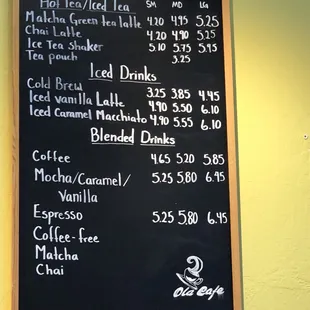 Hot Tea/Iced Tea SM MD LG
Matcha Green tea latte 4.20 4.95 5.25
Chai Latte 4.20 4.90 5.25
Ice Tea Shaker 5.10 5.75 5.95
Tea pouch 3.25
Iced Drinks
Cold Brew 3.25 3.85 4.45
Iced vanilla Latte 4.90 5.50 6.10
Iced Caramel Macchiato 4.90 5.55 6.10
Blended Drinks
Coffee 4.65 5.20 5.85
Mocha/Caramel/ 5.25 5.80 6.45
Vanilla
Espresso 5.25 5.80 6.45
Coffee-free
Matcha
Chai
Olá Cafe